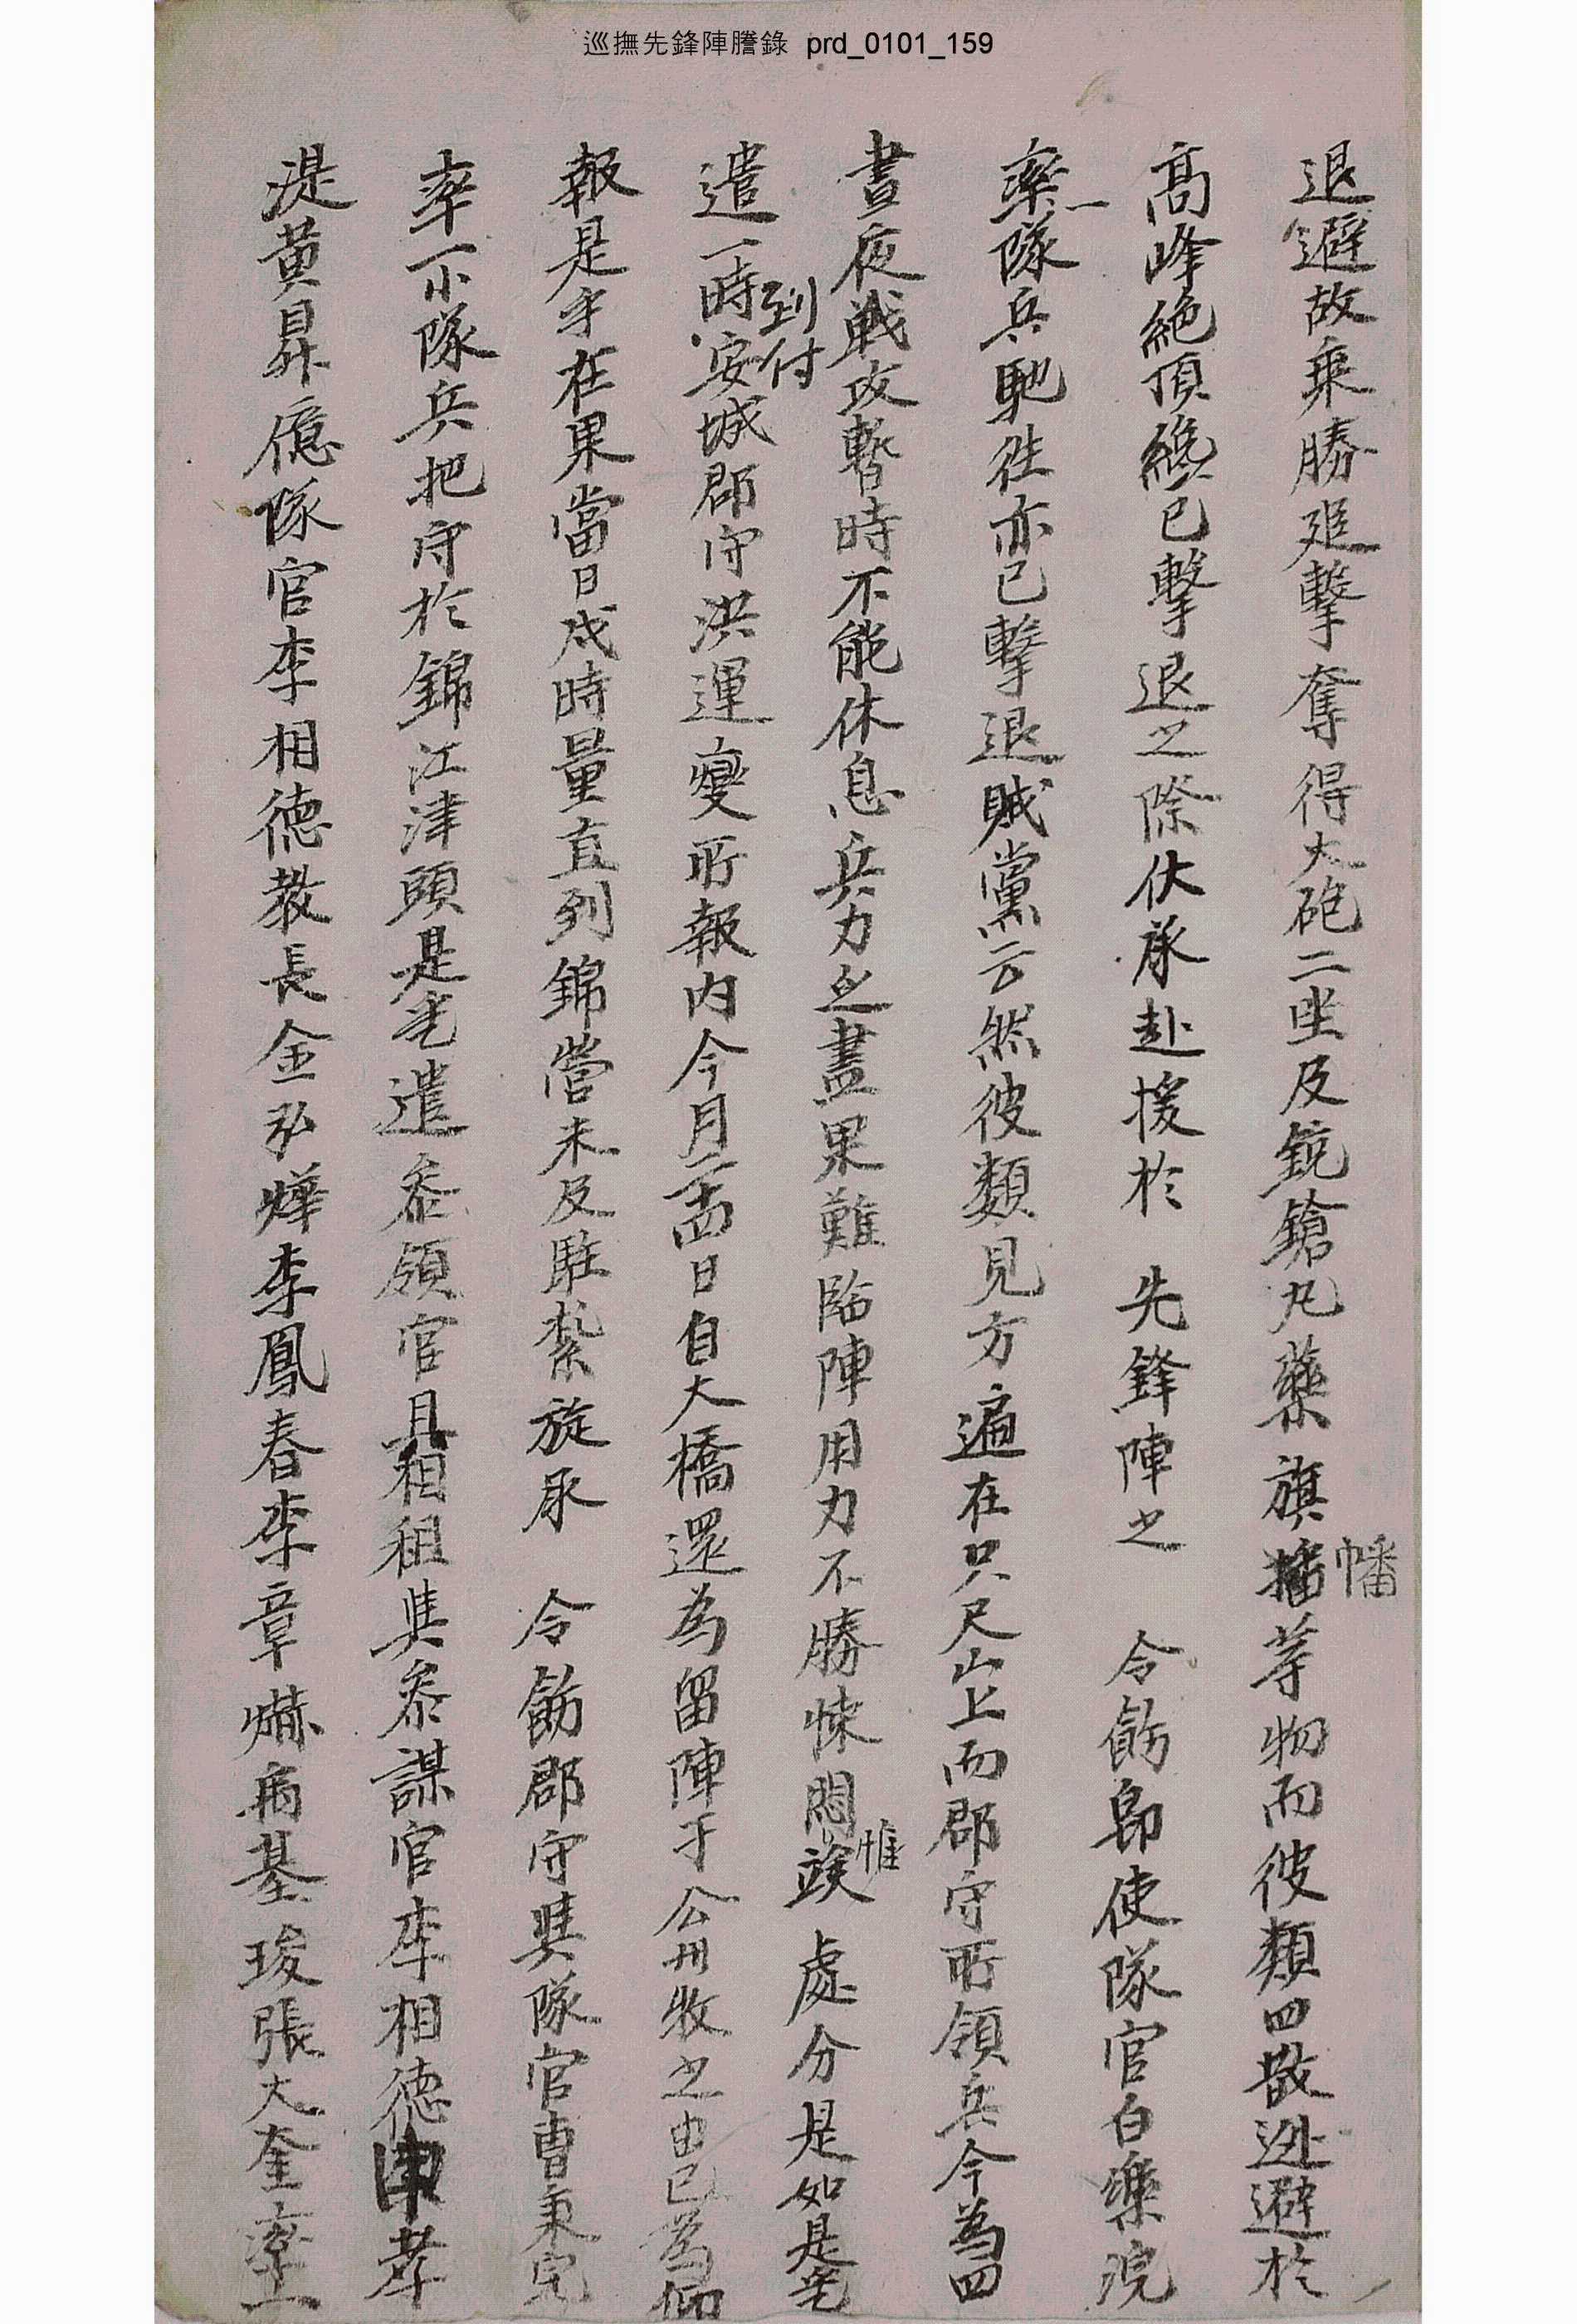 巡撫先鋒陣謄錄 prd_0101_159
退避故乘勝追擊奪得大砲二坐及銃鎗丸藥旗幡等物而彼類四散逃避於
高峰絶頂纔已擊退之際伏承赴援於 先鋒陣之 令飭卽使隊官白樂浣
率一隊兵馳往亦已擊退賊黨云然彼類見方遍在只尺山上而郡守所領兵今爲四
晝夜戰攻暫時不能休息兵力之盡果難臨陣用力不勝悚悶惟竢處分是如是乎
遣一時到付安城郡守洪運燮所報內今月二十四日自大橋還爲留陣于公州牧之由已爲仰
報是乎在果當日戌時量直列錦營未及駐紮旋承 令飭郡守與隊官曺秉完
率一小隊兵把守於錦江津頭是乎遣參領官具相祖與參謀官李相德申孝
湜黃昇億隊官李相德敎長金弘燁李鳳春李章爀丙基琓張大奎率一